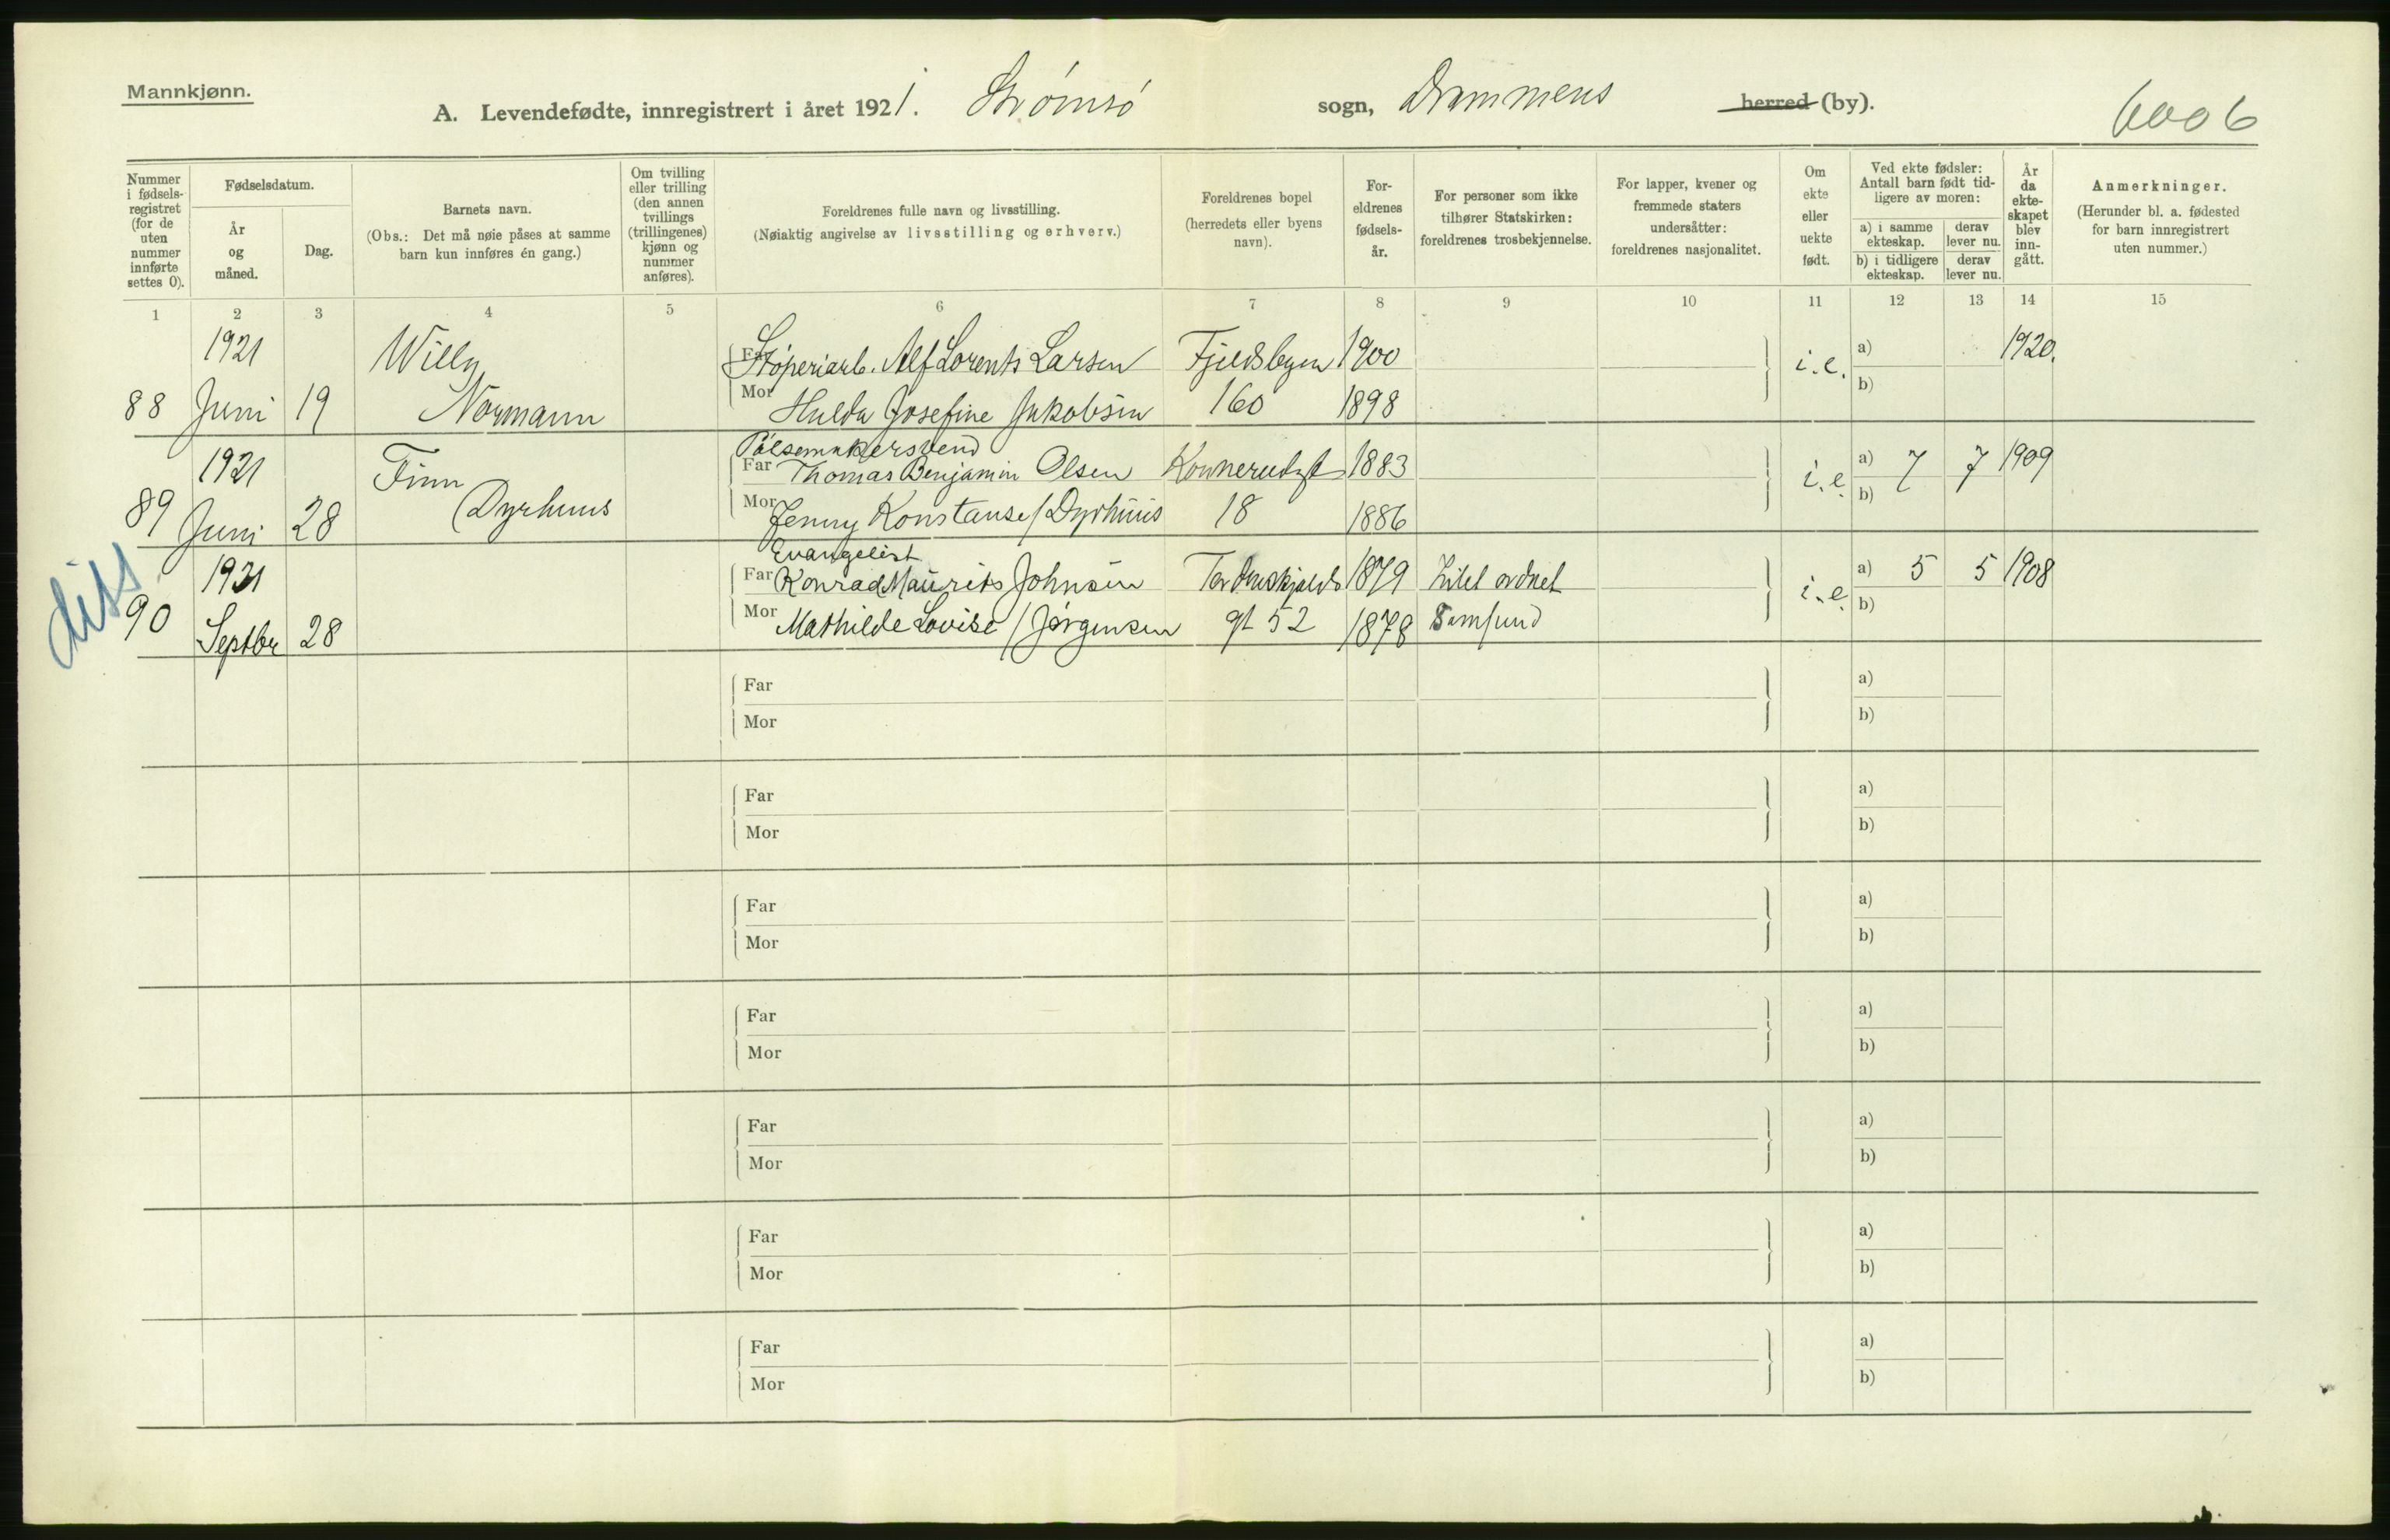 Mannkjønn.
A. Levendefødte, innregistrert i året 1921. Strømsø sogn, Drammens herred (by).
6006
Nummer i fødsels-registret (for de uten nummer innførte settes 0).
Fødselsdatum.
År og måned.
Dag.
Barnets navn.
(Obs.: Det må nøie påses at samme barn kun innføres én gang.)
Om tvilling eller trilling (den annen tvillings (trillingenes) kjønn og nummer anføres).
Foreldrenes fulle navn og livsstilling.
(Nøiaktig angivelse av livsstilling og erhverv.)
Foreldrenes bopel
(herredets eller byens navn).
For-eldrenes fødsels-år.
For personer som ikke tilhører Statskirken: foreldrenes trosbekjennelse.
For lapper, kvener og fremmede staters undersåtter: foreldrenes nasjonalitet.
Om ekte eller uekte født.
Ved ekte fødsler: Antall barn født tid-ligere av moren:
a) i samme ekteskap.
derav lever nu.
b) i tidligere ekteskap.
derav lever nu.
År da ekte-skapet blev inn-gått.
Anmerkninger.
(Herunder bl. a. fødested for barn innregistrert uten nummer.)
1 2 3 4 5 6 7 8 9 10 11 12 13 14 15
1921 Willy Far Støperiarb. Alf Lorents Larsen Fjeldsbyen 1900 i.e. a) 1920.
88 Juni 19 Normann Mor Hulda Josefine Jakobsen 160 1898 b)
Pølsemakersvend
1921 Finn Far Thomas Benjamin Olsen Konnerudgt 1883 i.e. a) 7 7 1909
89 Juni 28 Dyrhuus Mor Jenny Konstanse / Dyrhuus 18 1886 b)
diss
Evangelist
1921 Far Konrad Maurits Johnsen Tordenskjolds 1879 i.e. a) 5 5 1908
90 Septbr 28 Mor Mathilde Lovise / Jørgensen gt 52 1878 Samfund b)
Far a)
Mor b)
Far a)
Mor b)
Far a)
Mor b)
Far a)
Mor b)
Far a)
Mor b)
Far a)
Mor b)
Far a)
Mor b)